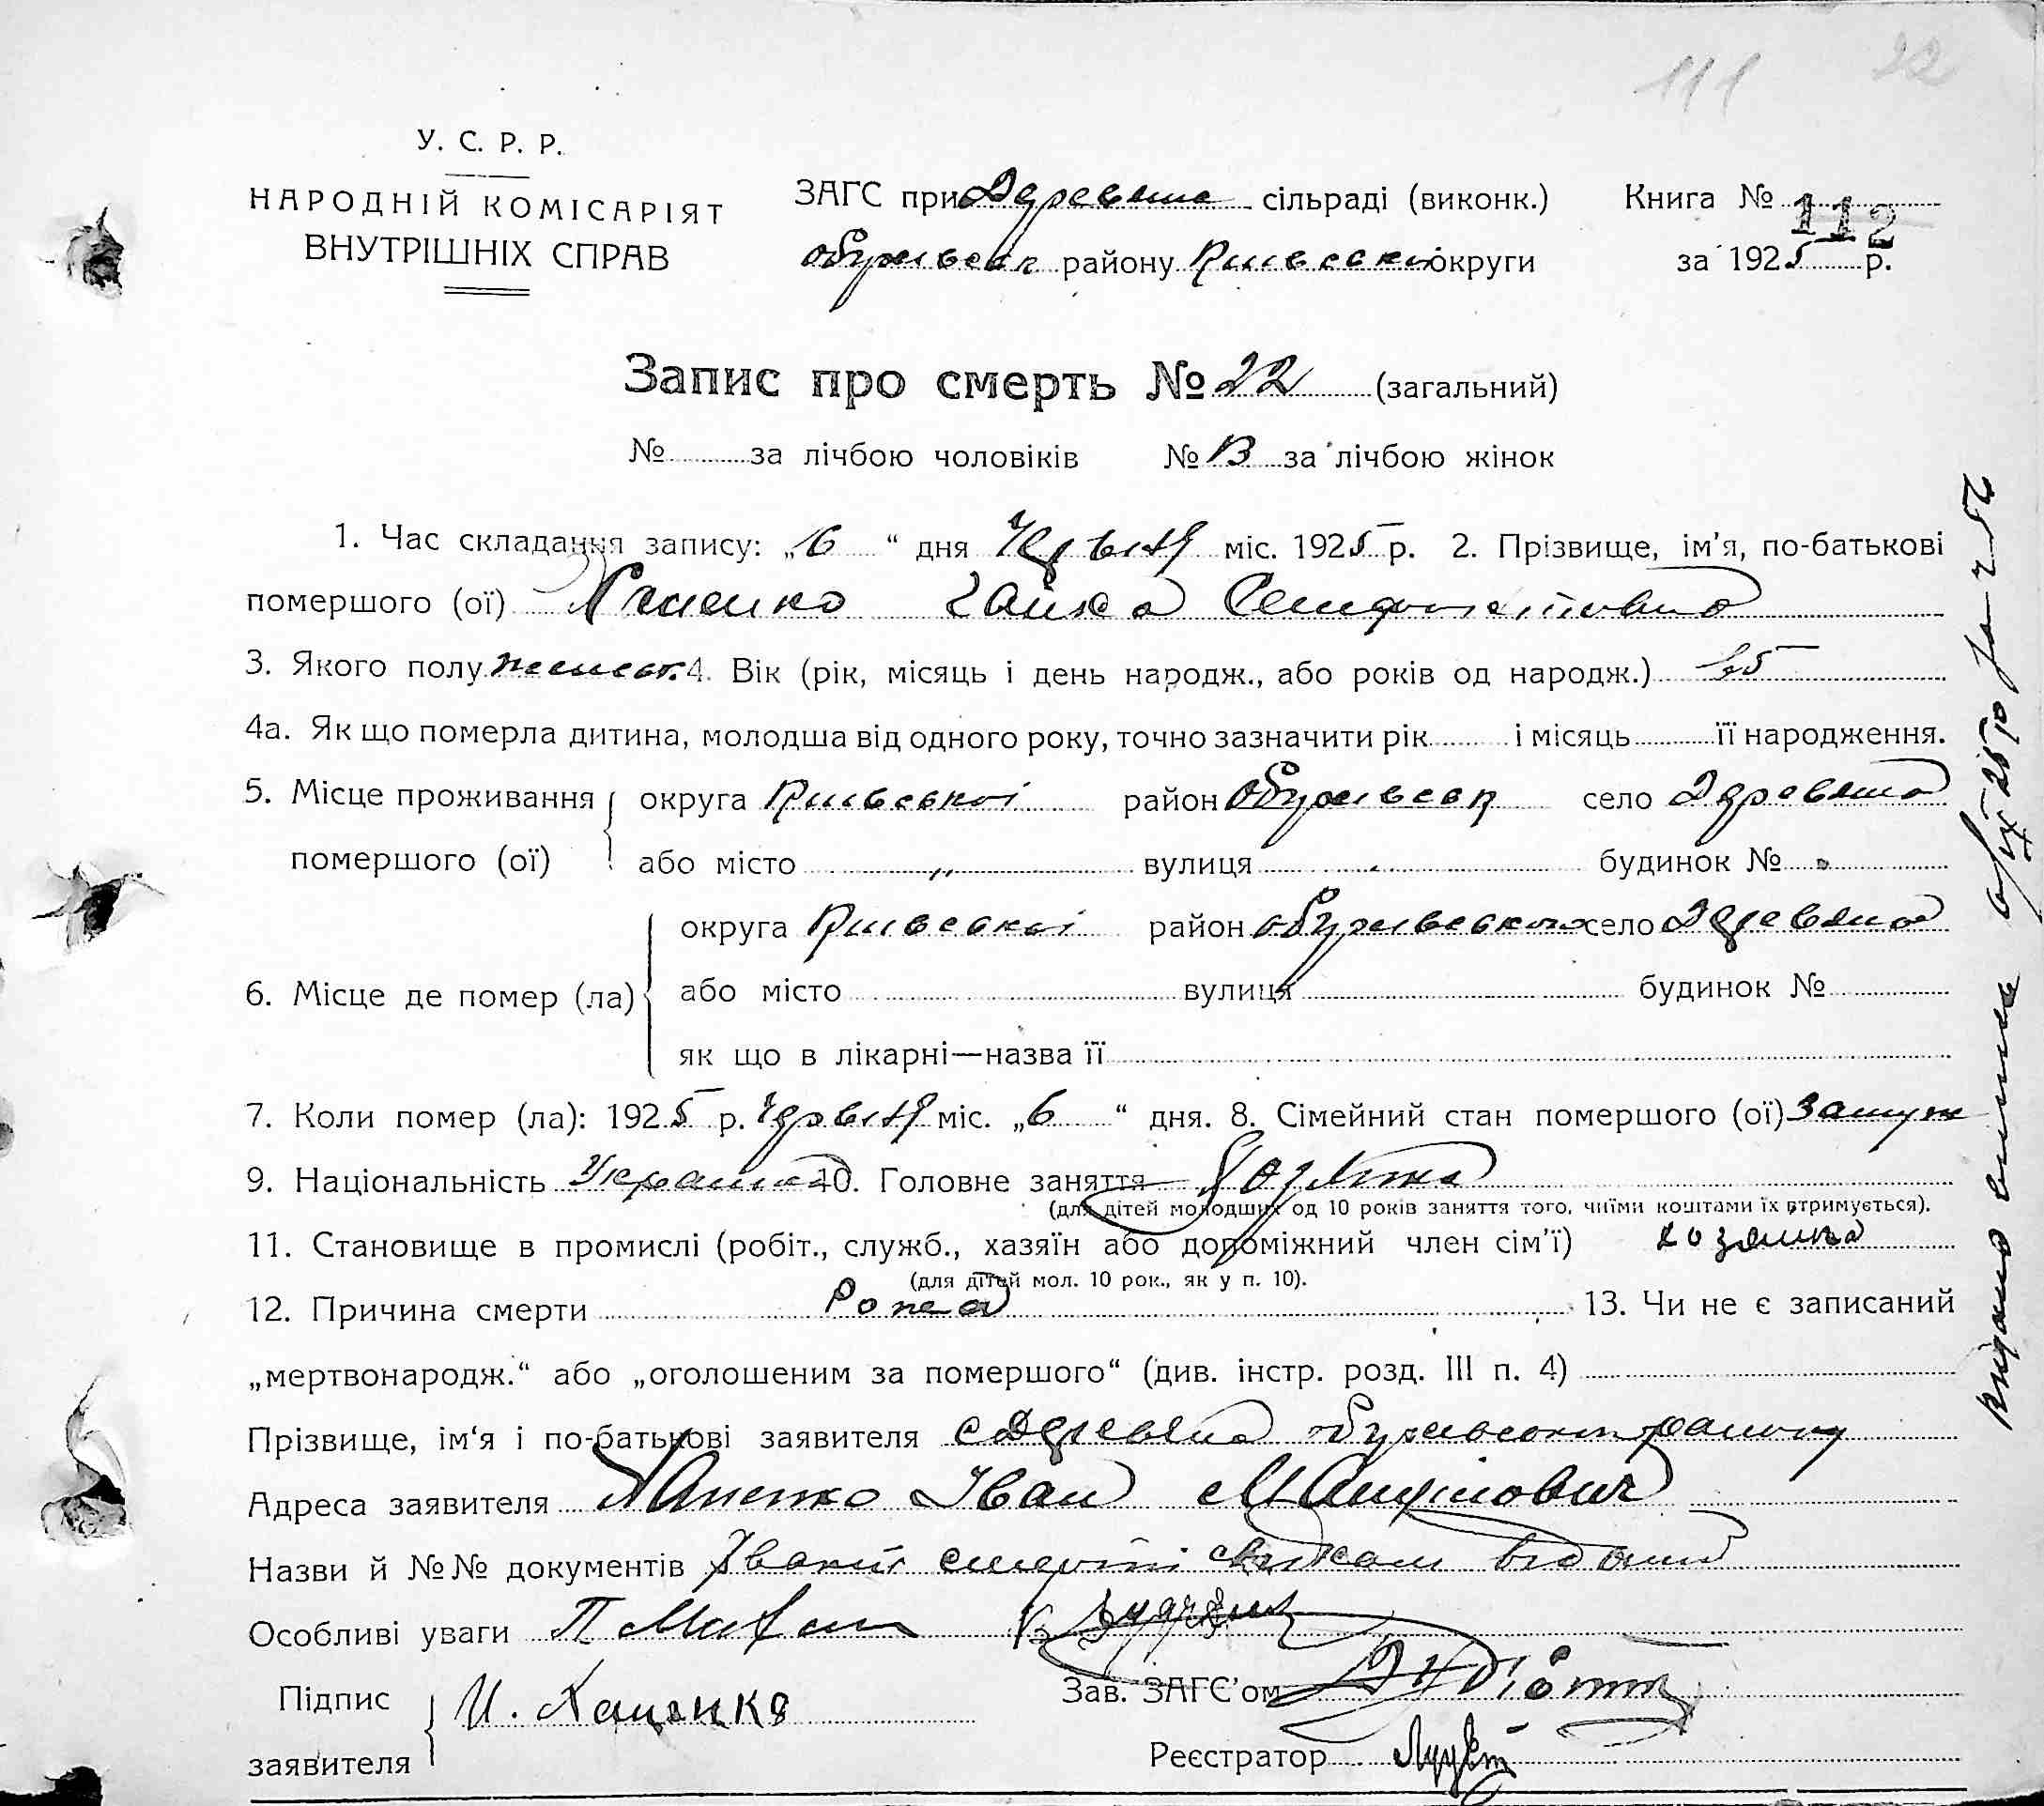 111 22
У. С. Р. Р.
НАРОДНІЙ КОМІСАРІЯТ
ВНУТРІШНІХ СПРАВ
ЗАГС при Деревяна сільраді (виконк.) Книга № 112
обухівськ району Київської округи за 1925 р.
Запис про смерть № 22 (загальний)
№ за лічбою чоловіків № 13 за лічбою жінок
1. Час складання запису: „6“ дня Червня міс. 1925 р. 2. Прізвище, ім'я, по-батькові
помершого (ої)
3. Якого полу женськ. 4. Вік (рік, місяць і день народж., або років од народж.)
4а. Як що померла дитина, молодша від одного року, точно зазначити рік і місяць її народження.
5. Місце проживання округа Київської район Обухівськ село Деревяна
помершого (ої) або місто „ вулиця будинок №
6. Місце де помер (ла) округа Київської район обухівського село Деревяна
або місто вулиця будинок №
як що в лікарні—назва її
7. Коли помер (ла): 1925 р. Червня міс. „6“ дня. 8. Сімейний стан помершого (ої) Замуж
9. Національність Українка 10. Головне заняття
(для дітей молодших од 10 років заняття того, чиїми коштами їх втримується).
11. Становище в промислі (робіт., служб., хазяїн або допоміжний член сім'ї) хозяйка
(для дітей мол. 10 рок., як у п. 10).
12. Причина смерти Рожа 13. Чи не є записаний
„мертвонародж.“ або „оголошеним за помершого“ (див. інстр. розд. III п. 4)
Прізвище, ім'я і по-батькові заявителя с Деревяна обухівського району
Адреса заявителя Іван
Назви й №№ документів смерті
Особливі уваги
Підпис И. Хаценко Зав. ЗАГС'ом
заявителя Реєстратор